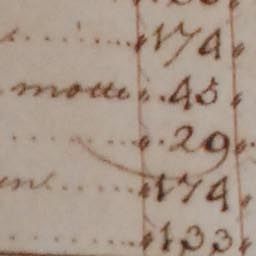 174
motte 45
29
174
133